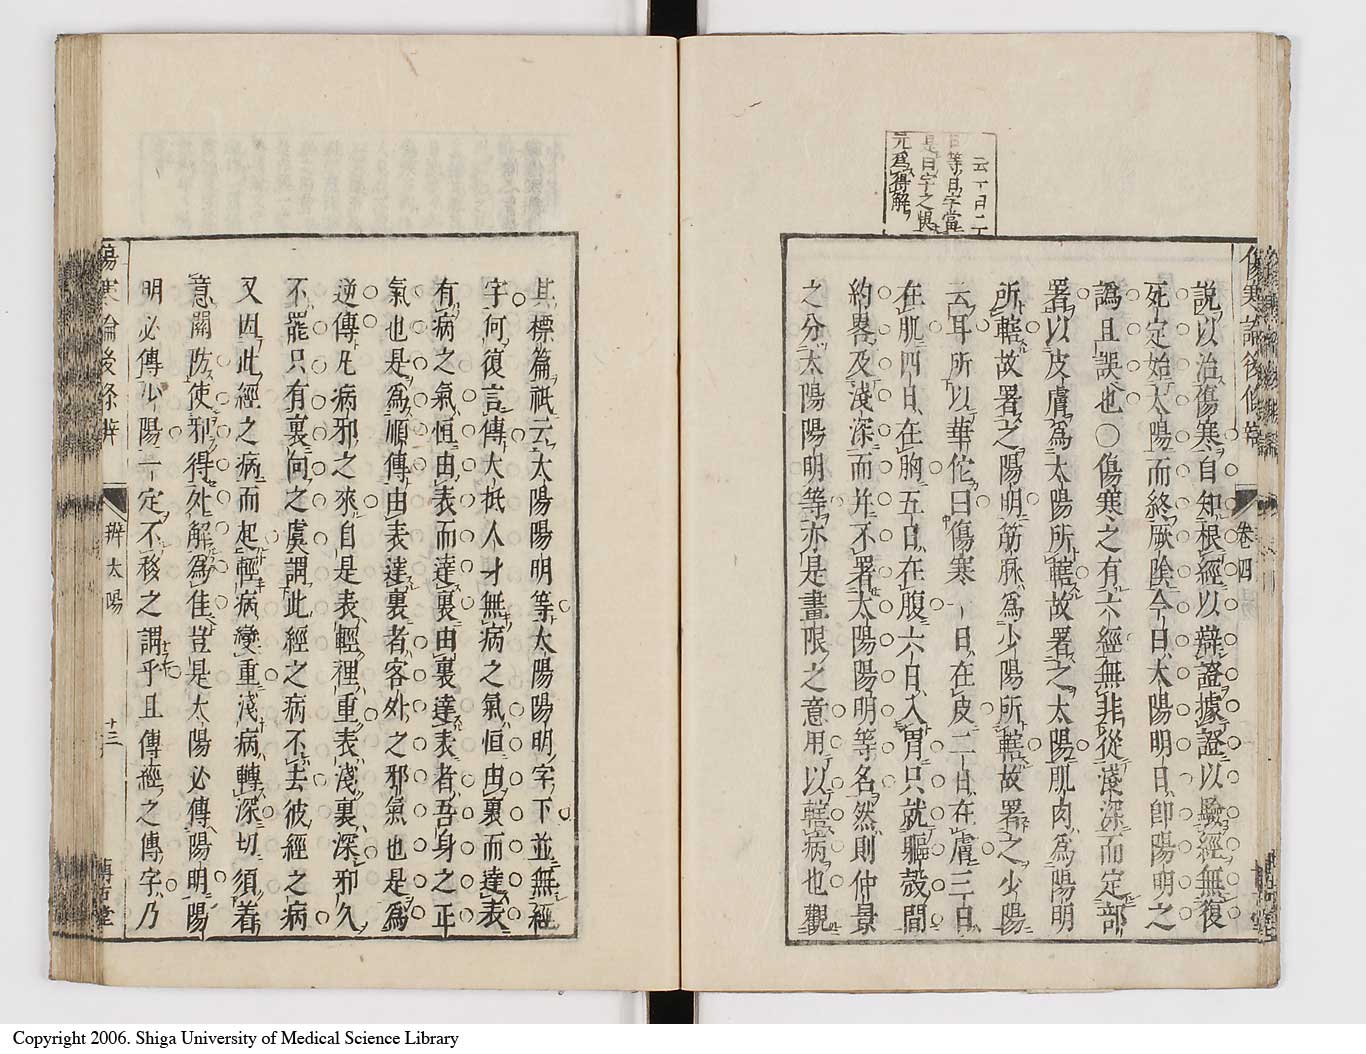 云一日二
日等日字當
是曰字之誤
元爲得解
傷寒論後條辨
卷四
說以治傷寒自知根經以辯證據證以驗經無復
死定始太陽而終厥陰今日太陽明日卽陽明之
譌且誤也〇傷寒之有六經無非從淺深而定部
署以皮膚爲太陽所轄故署之太陽肌肉爲陽明
所轄故署之陽明筋脉爲少陽所轄故署之少陽
云耳所以華佗曰傷寒一日在皮二日在膚三日
在肌四日在胸五日在腹六日入胃只就軀殼間
約畧及淺深而幷不署太陽陽明等名然則仲景
之分太陽陽明等亦是畫限之意用以轄病也觀
其標篇祇云太陽陽明等太陽陽明字下並無經
字何復言傳大抵人身無病之氣恒由裏而達表
有病之氣恒由表而達裏由裏達表者吾身之正
氣也是爲順傳由表達裏者客外之邪氣也是爲
逆傳凡病邪之來自是表輕裡重表淺裏深邪久
不罷只有裏向之虞謂此經之病不去彼經之病
又因此經之病而起輕病變重淺病轉深切須着
意關防使邪得外解爲佳豈是太陽必傳陽明陽
明必傳少陽一定不移之謂乎且傳經之傳字乃
傷寒論後條辨
辨太陽
十三
博古堂
Copyright 2006. Shiga University of Medical Science Library